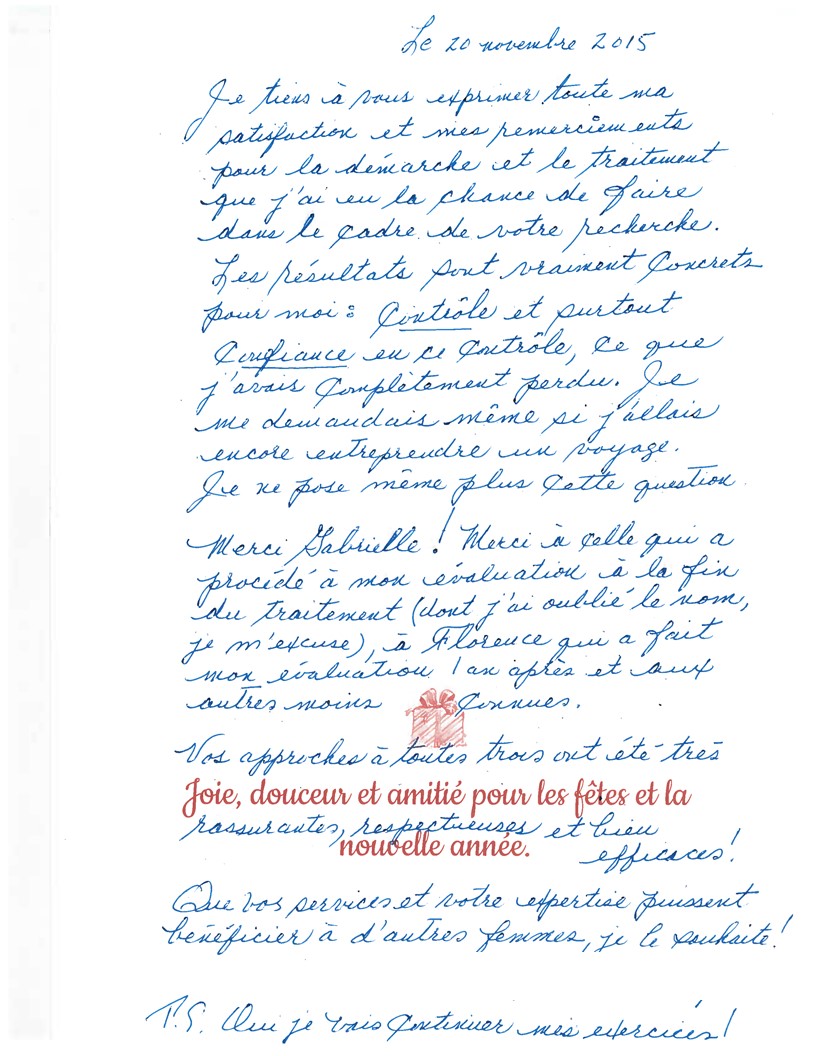 Le 20 novembre 2015
Je tiens à vous exprimer toute ma
satisfaction et mes remerciements
pour la démarche et le traitement
que j'ai eu la chance de faire
dans le cadre de votre recherche.
Les résultats sont vraiment concrets
pour moi : Contrôle et surtout
Confiance en ce contrôle, ce que
j'avais complètement perdu. Je
me demandais même si j'allais
encore entreprendre un voyage.
Je ne pose même plus cette question
Merci Gabrielle ! Merci à celle qui a
procédé à mon évaluation à la fin
du traitement (dont j'ai oublié le nom,
je m'excuse), à Florence qui a fait
mon évaluation 1 an après et aux
autres moins connues.
Vos approches à toutes trois ont été très
Joie, douceur et amitié pour les fêtes et la
rassurantes, respectueuses et bien
nouvelle année.
efficaces !
Que vos services et votre expertise puissent
bénéficier à d'autres femmes, je le souhaite !
P.S. Oui je vais continuer mes exercices !